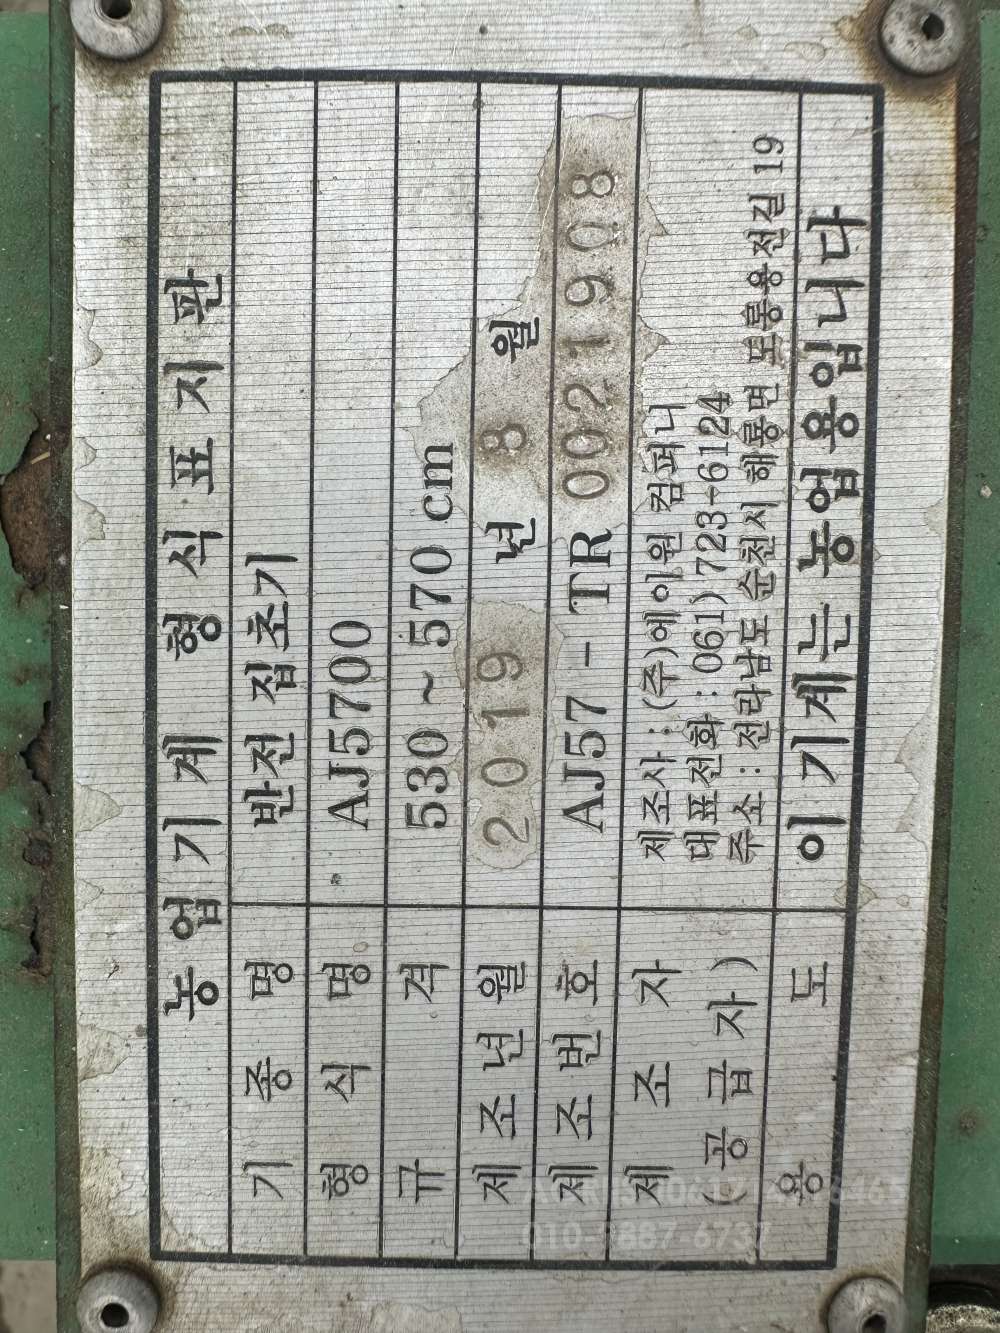 농업기계 형식표지판
기종명 반전집초기
형식명 AJ5700
규격 530~570cm
제조년월 2019년 8월
제조번호 AJ57-TR 0021908
제조자 제조사:(주)에이원 컴퍼니
(공급자) 대표전화:061)723-6124
주소:전라남도 순천시 해룡면 모롱용전길 19
용도 이기계는 농업용입니다